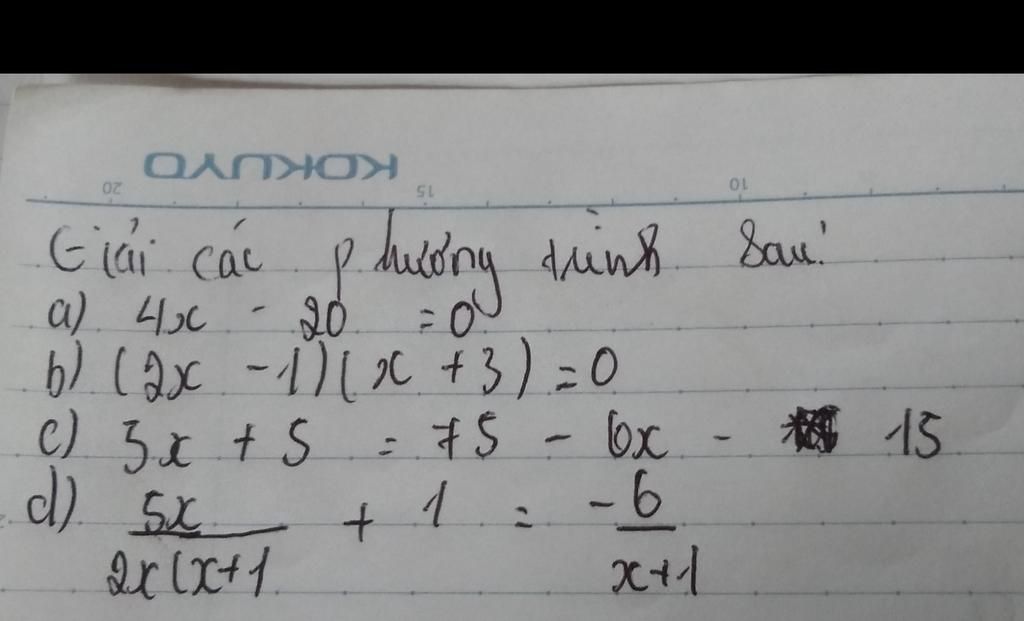 KOKUYO
20 15 10
Giải các phương trình sau:
a) 4x - 20 = 0
b) (2x - 1)(x + 3) = 0
c) 3x + 5 = 75 - 6x - 15
d) 5x/2x(x+1 + 1 = -6/x+1